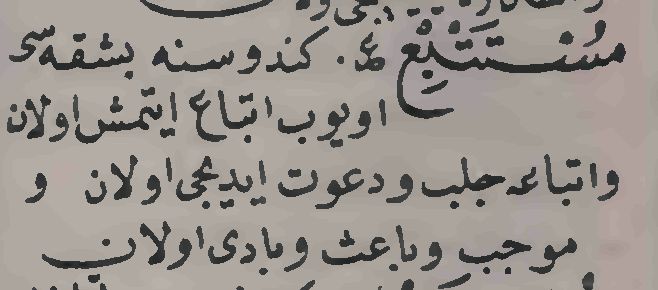 مُسْتَتْبِعْ ع. كندوسنه بشقه‌سی
اویوب اتباع ایتمش اولان
واتباعه جلب ودعوت ایدیجی اولان و
موجب وباعث وبادی اولان